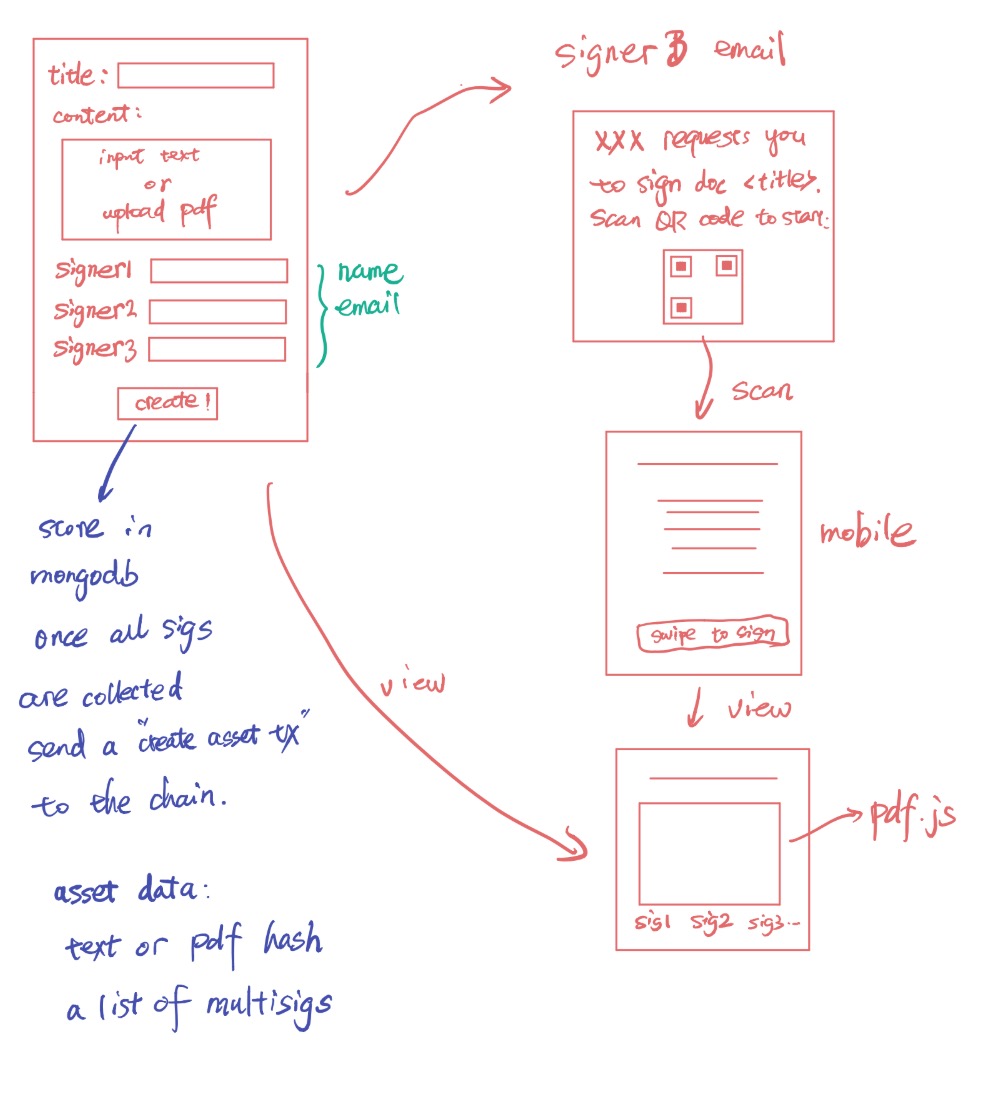 title:
content:
input text
or
upload pdf
signer1
signer2
signer3
name
email
create!
store in
mongodb
once all sigs
are collected
send a "create asset tx"
to the chain.
asset data:
text or pdf hash
a list of multisigs
signer3 email
XXX requests you
to sign doc <title>.
Scan QR code to start.
scan
mobile
swipe to sign
view
view
pdf.js
sig1 sig2 sig3...